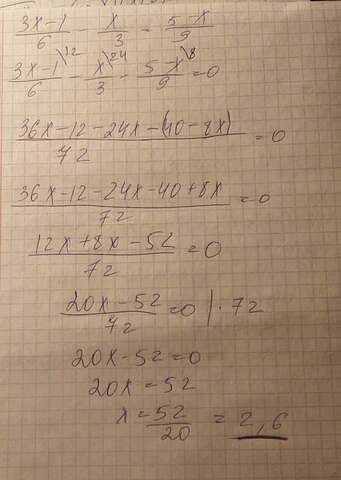 3x-1/6 - x/3 = 5-x/9
3x-1\12/6 - x\24/3 - 5-x\8/9 = 0
36x-12-24x-(40-8x)/72 = 0
36x-12-24x-40+8x/72 = 0
12x+8x-52/72 = 0
20x-52/72 = 0 |·72
20x-52=0
20x=52
x=52/20 = 2,6